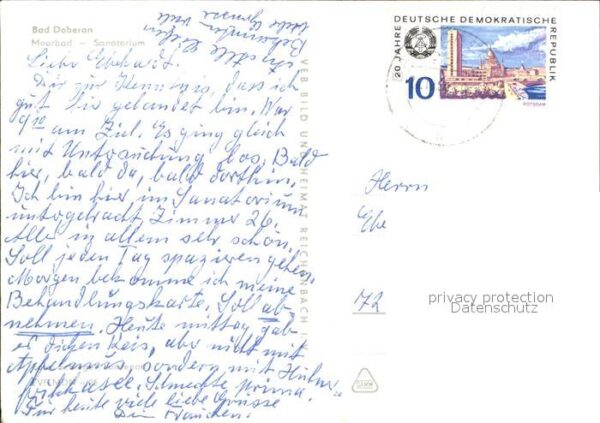 Bad Doberan
Moorbad – Sanatorium
Lieber Ekehart.
Dir zur Kenntnis, dass ich
gut hier gelandet bin. War
9¹⁰ am Ziel. Es ging gleich
mit Untersuchung los. Bald
hier, bald da, bald dorthin.
Ich bin hier im Sanatorium
untergebracht Zimmer 26.
Alles in allem sehr schön.
Soll jeden Tag spazieren gehen.
Morgen bekomme ich meine
Behandlungskarte. Soll ab-
nehmen. Heute mittag gab
es dicken Reis, aber nicht mit
Apfelmus sondern mit Hühner-
frikassee. Schmeckte prima.
Für heute viele liebe Grüsse
Dein
VEB BILD UND HEIMAT REICHENBACH I. V.
20 JAHRE DEUTSCHE DEMOKRATISCHE REPUBLIK
10
POTSDAM
Herrn
72
privacy protection
Datenschutz